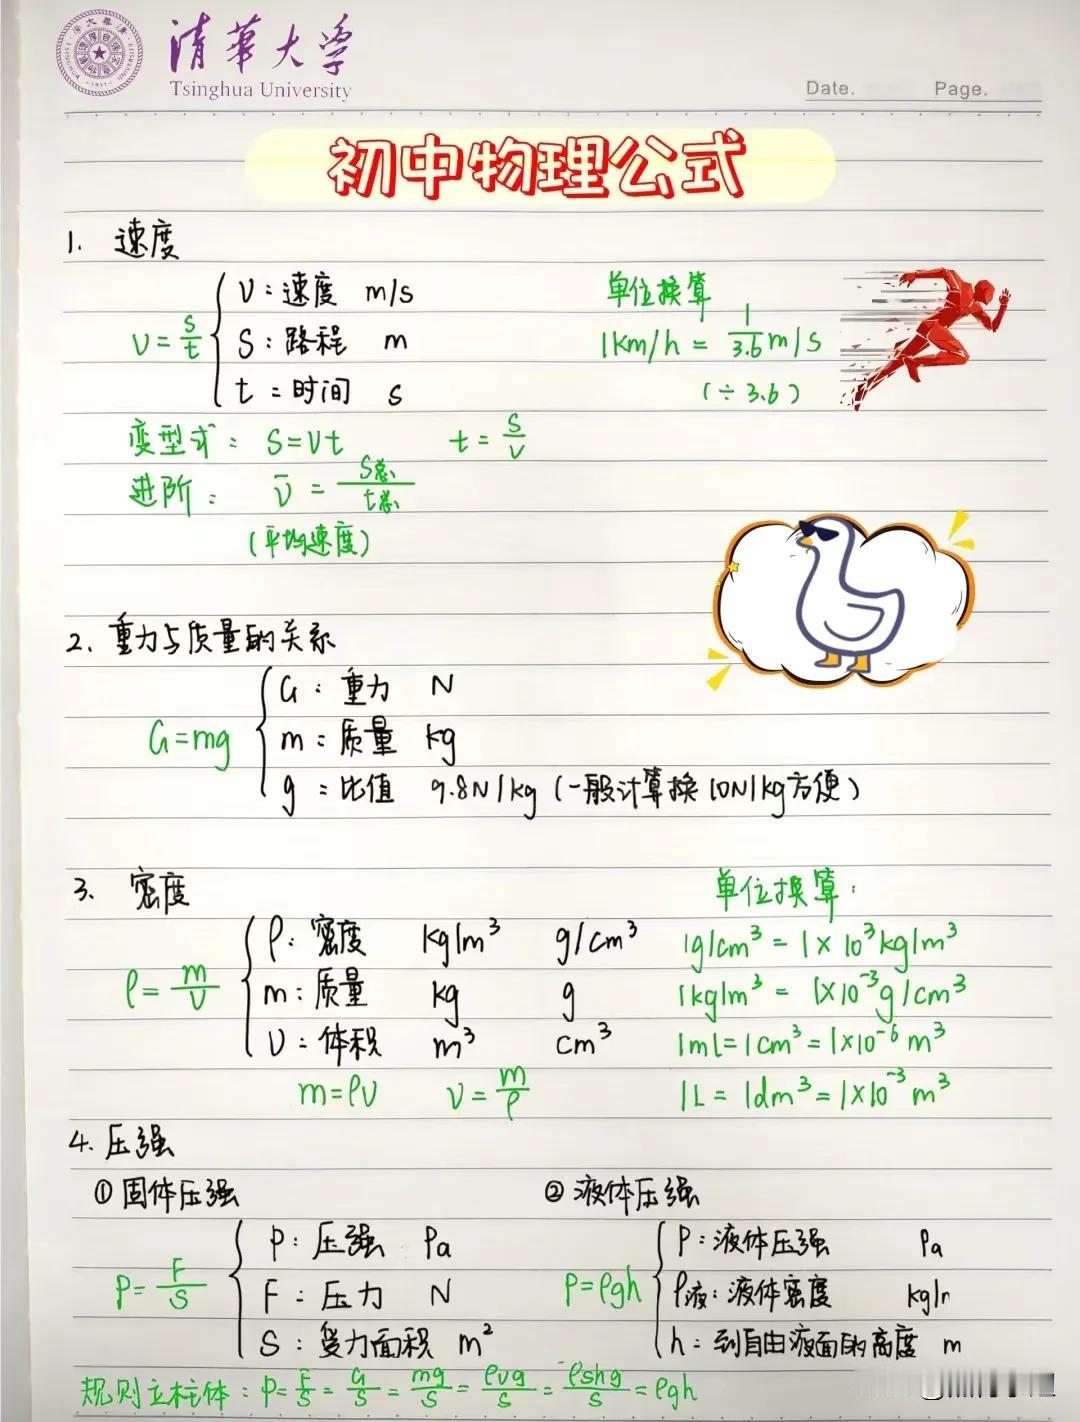 清華大学
Tsinghua University
Date. Page.
初中物理公式
1. 速度
v = s/t
v：速度 m/s
S：路程 m
t：时间 s
单位换算
1km/h = 1/3.6 m/s
(÷3.6)
变型式：S=Vt t = s/v
进阶：v̄ = S总/t总
(平均速度)
2、重力与质量的关系
G=mg
G：重力 N
m：质量 kg
g：比值 9.8N/kg (一般计算换10N/kg方便)
3、密度
ρ = m/V
ρ：密度 kg/m³ g/cm³
m：质量 kg g
V：体积 m³ cm³
m=ρv v = m/ρ
单位换算：
1g/cm³ = 1×10³kg/m³
1kg/m³ = 1×10⁻³g/cm³
1mL=1cm³=1×10⁻⁶m³
1L=1dm³=1×10⁻³m³
4、压强
①固体压强
P = F/S
P：压强 Pa
F：压力 N
S：受力面积 m²
②液体压强
P=ρgh
P：液体压强 Pa
ρ液：液体密度 kg/m
h：到自由液面的高度 m
规则立柱体：P = F/S = G/S = mg/S = ρvg/S = ρshg/S = ρgh